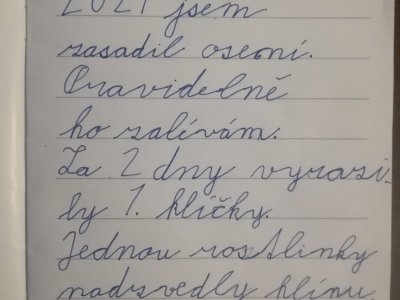 2021 jsem
zasadil osení.
Pravidelně
ho zalévám.
Za 2 dny vyrazi-
ly 1. klíčky.
Jednou rostlinky
nadzvedly hlínu